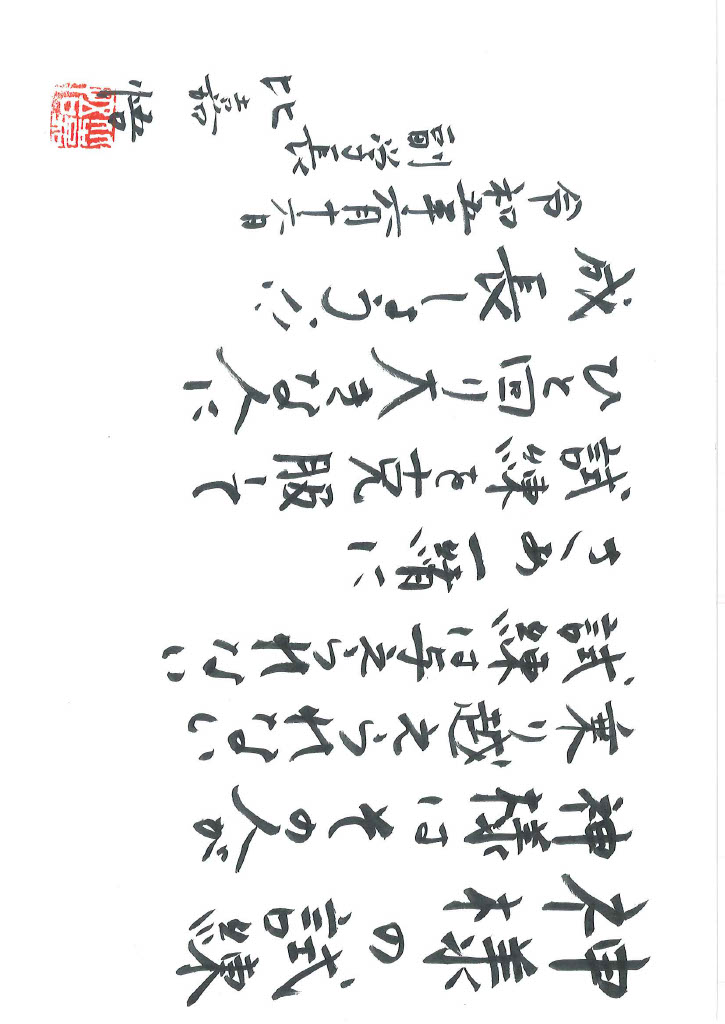 神様の試練
神様はその人が
乗り越えられない
試練は与えられない
さあ一緒に
試練を克服して
ひと回り大きな人に
成長しましょう!!
令和五年六月十六日
副学長
比嘉 悟